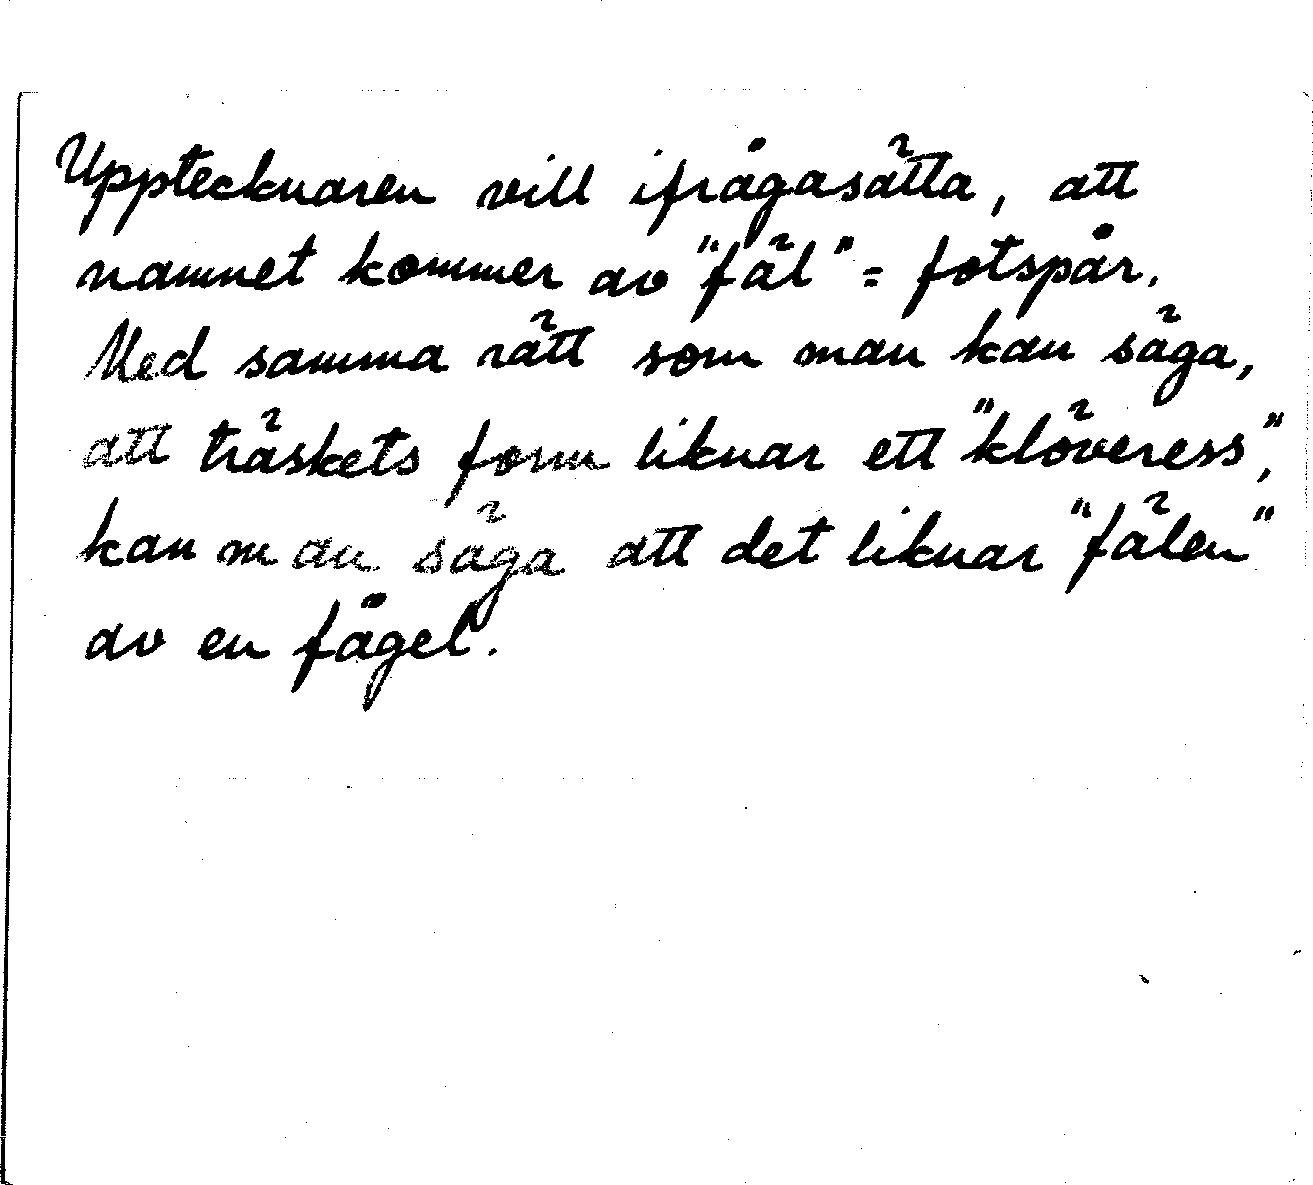 Upptecknaren vill ifrågasätta, att
namnet kommer av "fäl" = fotspår.
Med samma rätt som man kan säga,
att träskets form liknar ett "klöveress",
kan man säga att det liknar "fälen"
av en fågel.